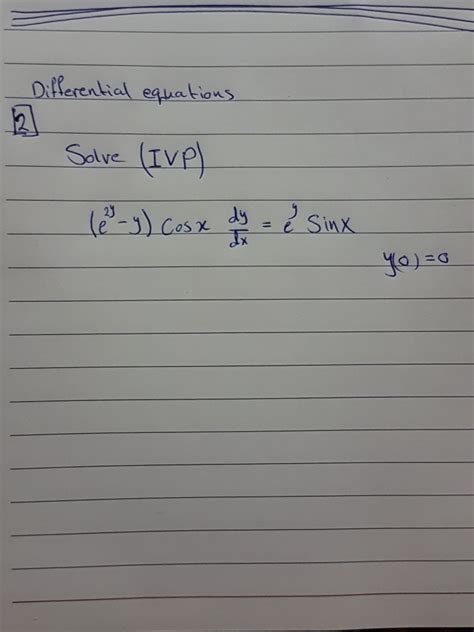 Differential equations
2
Solve (IVP)
(e^{2y} - y) Cosx dy/dx = e^y Sinx
y(0) = 0